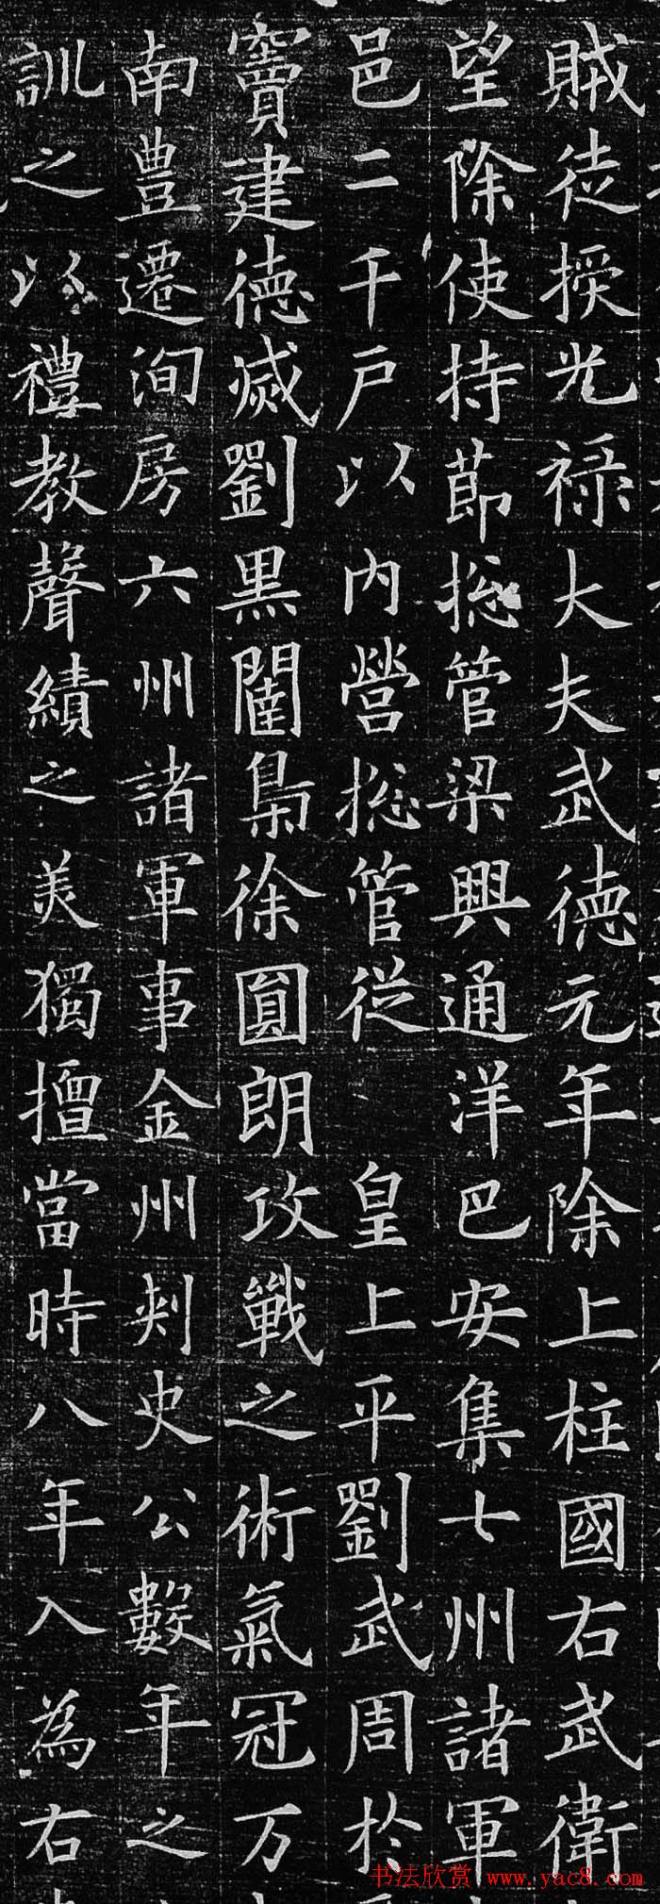 賊徒授光祿大夫武德元年除上柱國右武衛
望除使持節捴管梁興通洋巴安集七州諸軍
邑二千戶以內營捴管從 皇上平劉武周於
竇建德滅劉黑闥梟徐圓朗攻戰之術氣冠万
南豊遷洵房六州諸軍事金州刺史公數年之
訓之以禮教聲績之美獨擅當時八年入為右
书法欣赏 www.yac8.com